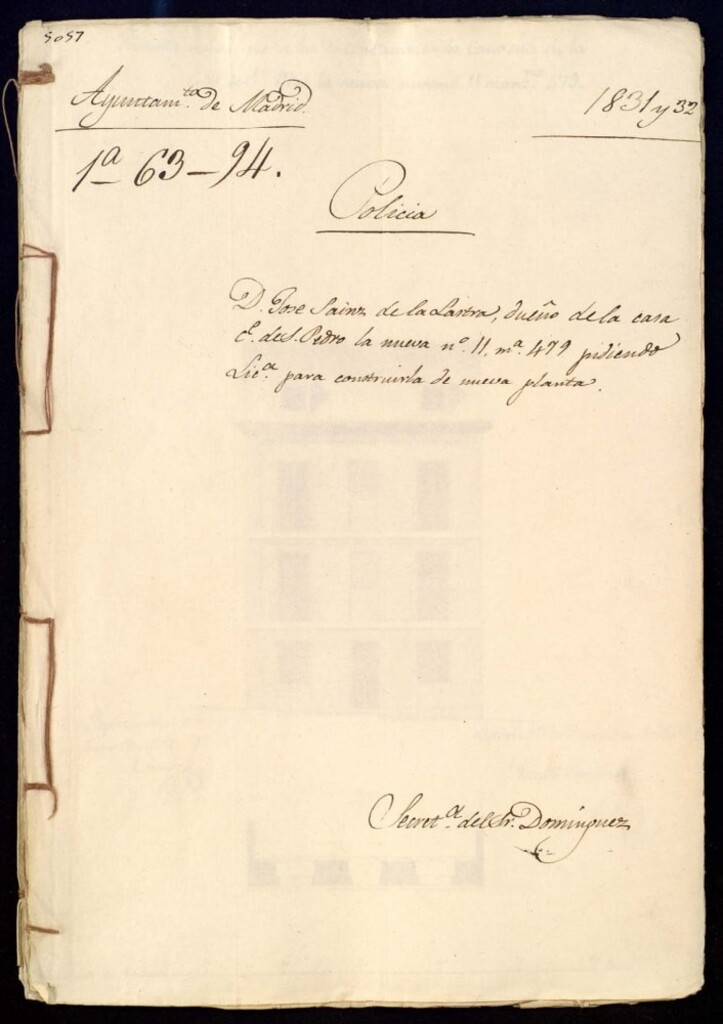 5057
Ayuntam.to de Madrid.
1831 y 32
1ª 63-94.
Policia
D. Jose Sainz de la Lastra, dueño de la casa
c.e de S. Pedro la nueva nº. 11, m.a 479 pidiendo
Lic.a para construirla de nueva planta.
Secret.a del Sr. Dominguez